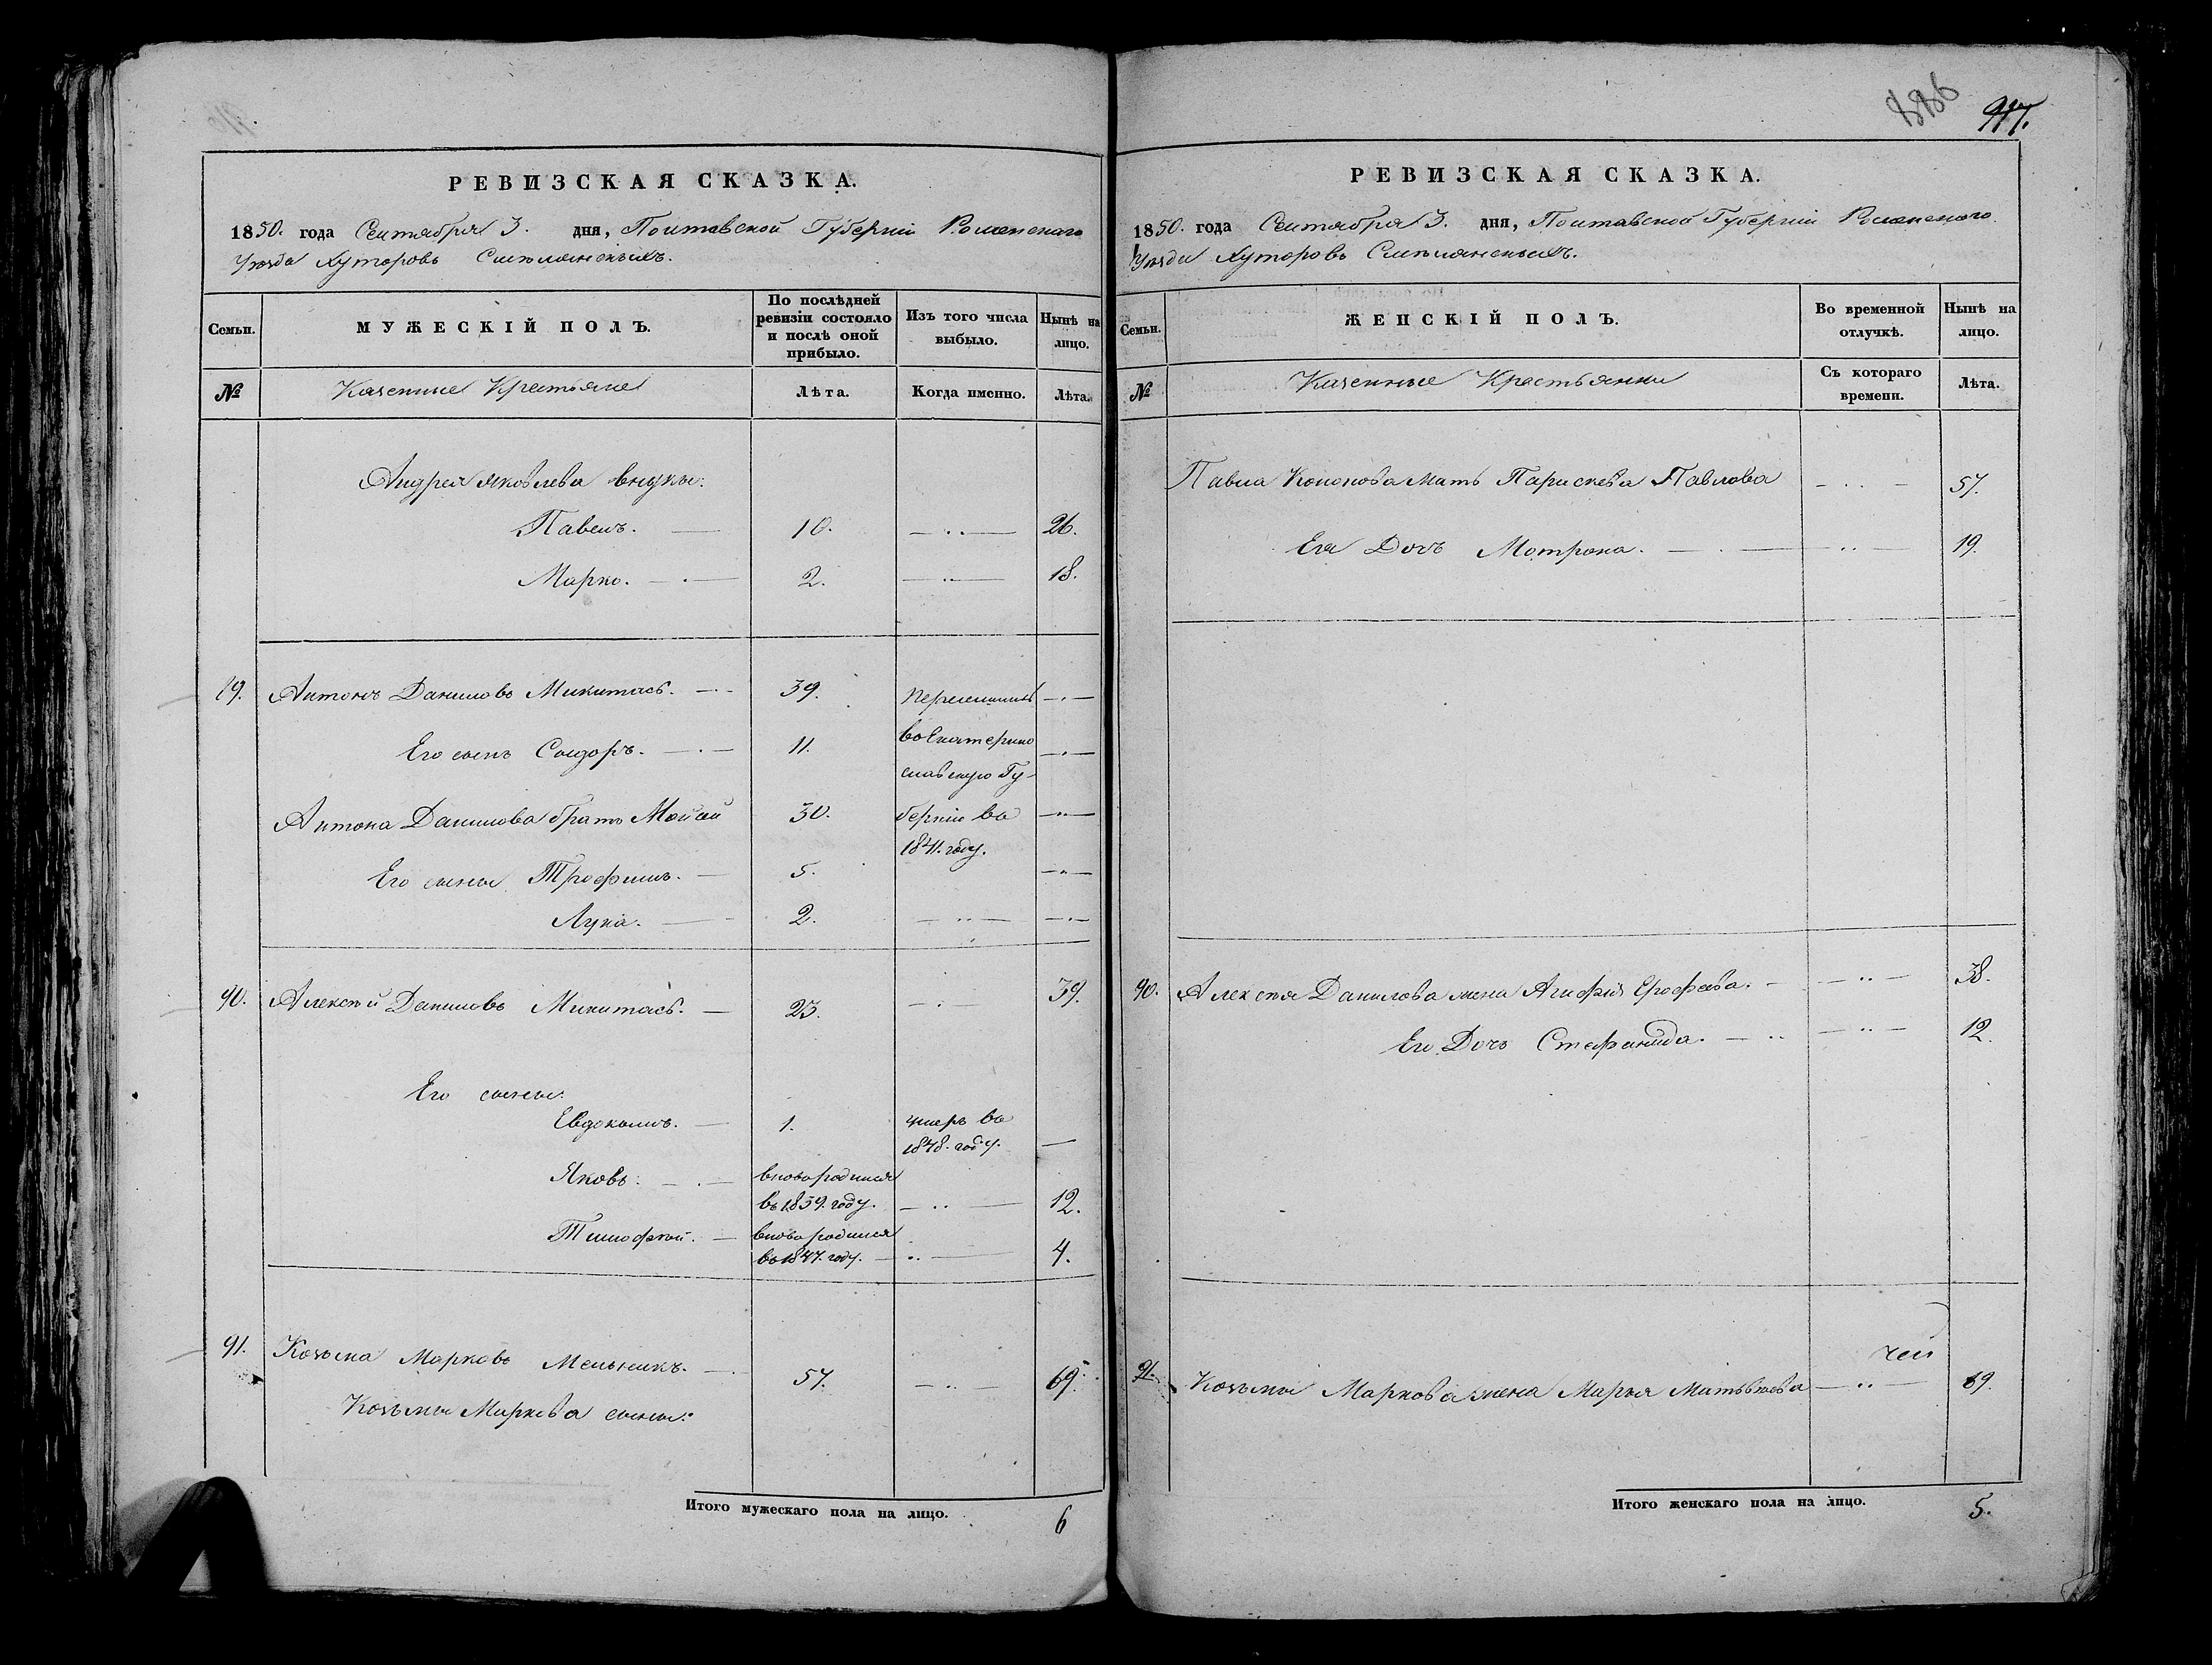 РЕВИЗСКАЯ СКАЗКА.
1850. года Сентября 3. дня, Полтавской Губерніи Роменскаго
Уѣзда Хуторовъ Смѣлянскихъ.
Семьи.
МУЖЕСКІЙ ПОЛЪ.
По послѣдней ревизіи состояло и послѣ оной прибыло.
Изъ того числа выбыло.
Нынѣ на лицо.
№
Казенные Крестьяне
Лѣта.
Когда именно.
Лѣта.
Андрея Яковлева внуки:
Павелъ. 10. 26.
Марко. 2. 18.
Антонъ Даниловъ Микитась. 39. Переселились
Его сынъ Сидоръ. 11. въ Екатерино
славскую Гу-
Антона Данилова братъ Мойсей 30. бернію въ
1841. году.
Его сыны Трофимъ. 5.
Лука. 2.
90. Алексѣй Даниловъ Микитась. 23. 39.
Его сыны:
Евдокимъ. 1. умеръ въ
1848. году.
Яковъ. вновь родился
въ 1839. году. 12.
Тимофей. вновь родился
въ 1847. году. 4.
91. Козьма Марковъ Мельникъ. 57. 69.
Козьмы Маркова сыны:
Итого мужескаго пола на лицо. 6
917.
РЕВИЗСКАЯ СКАЗКА.
1850. года Сентября 3. дня, Полтавской Губерніи Роменскаго
Уѣзда Хуторовъ Смѣлянскихъ.
Семьи.
ЖЕНСКІЙ ПОЛЪ.
Во временной отлучкѣ.
Нынѣ на лицо.
№
Казенные Крестьянки
Съ котораго времени.
Лѣта.
Павла Кононова мать Парискева Павлова 57.
Ея Дочь Мотрона. 19.
90. Алексѣя Данилова жена Агафія Ерофѣева. 38.
Его Дочь Стефанида. 12.
91. Козьмы Маркова жена Марья Матвѣева 69.
Итого женскаго пола на лицо. 5.